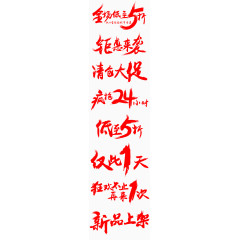 全场低至5折
钜惠来袭
清仓大促
疯抢24小时
低至5折
仅此1天
狂欢不止
再来1次
新品上架